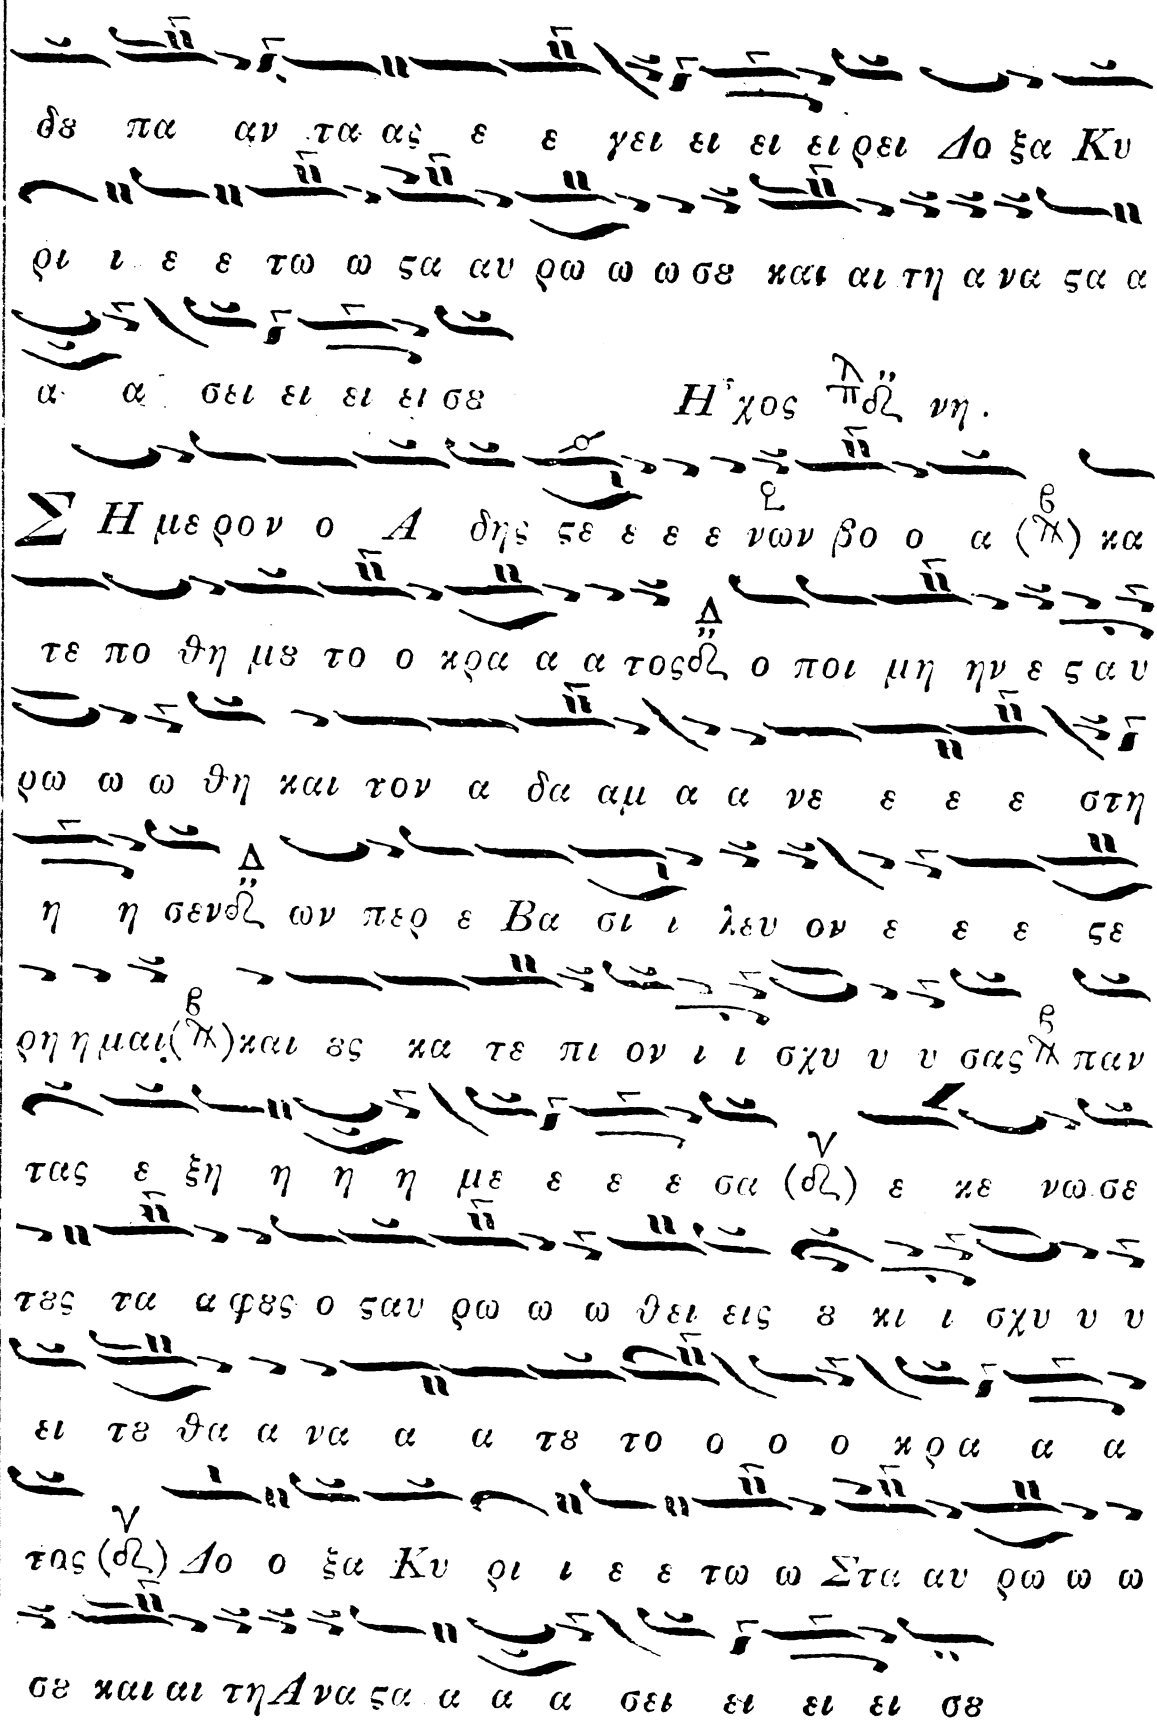 δȣ πα αν τα ας ε ε γει ει ει ει ρει Δο ξα Κυ
ρι ι ε ε τω ω ςα αυ ρω ω ω σȣ και αι τη α να ςα α
α α σει ει ει ει σȣ Ἦχος πλ δ νη.
Σ Η με ρον ο Α δης ςε ε ε ε νων βο ο α ( ) κα
τε πο θη μȣ το ο κρα α α τος Δ ο ποι μη ην ε ς α υ
ρω ω ω θη και τον α δα αμ α α νε ε ε ε στη
η η σεν Δ ων περ ε Βα σι ι λευ ον ε ε ε ςε
ρη η μαι ( ) και ȣς κα τε πι ον ι ι σχυ υ υ σας παν
τας ε ξη η η η με ε ε ε σα ( ) ε κε νω σε
τȣς τα α φȣς ο ςαυ ρω ω ω θει εις ȣ κι ι σχυ υ υ
ει τȣ θα α να α α τȣ το ο ο ο κρα α α
τος ( ) Δο ο ξα Κυ ρι ι ε ε τω ω Στα αυ ρω ω ω
σȣ και αι τη Α να ςα α α α σει ει ει ει σȣ